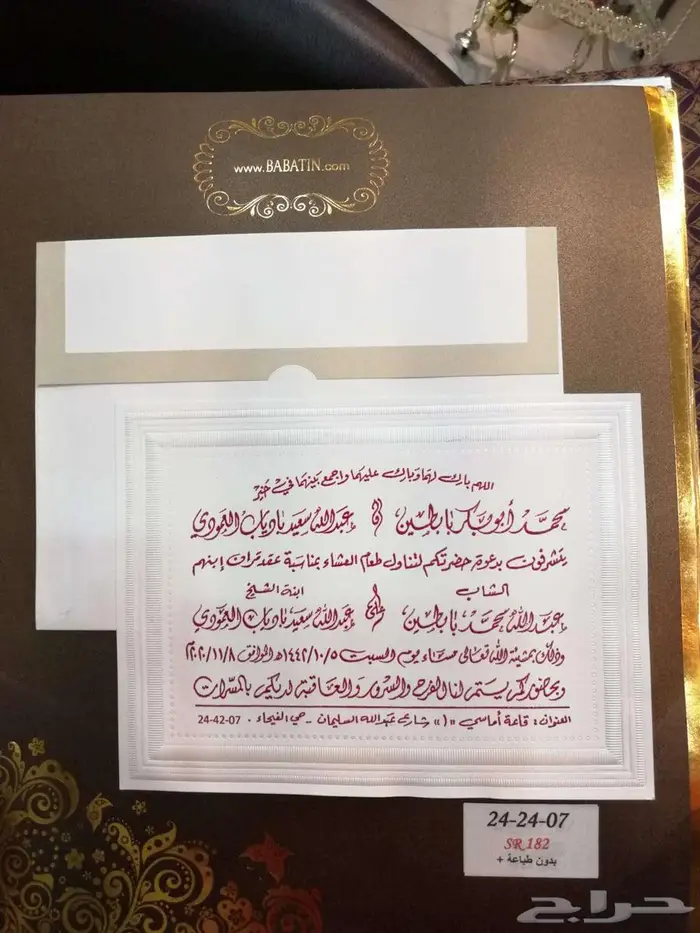 www.BABATIN.com
اللهم بارك لهما وبارك عليهما واجمع بينهما في خير
محمد أبوبكر بابطين و عبدالله سعيد باذياب العمودي
يتشرفون بدعوة حضرتكم لتناول طعام العشاء بمناسبة عقد قران إبنهم
الشاب ابنة الشيخ
عبدالله محمد بابطين على عبدالله سعيد باذياب العمودي
وذلك بمشيئة الله تعالى مساء يوم السبت ١٤٤٢/١٠/٥هـ الموافق ٢٠٢٠/١١/٨م
وبحضوركم يتم لنا الفرح والسرور والعاقبة لديكم بالمسرات
العنوان : قاعة أماسي «١» شارع عبدالله السليمان - حي الفيحاء . 24-42-07
24-24-07
SR 182
بدون طباعة +
حراج